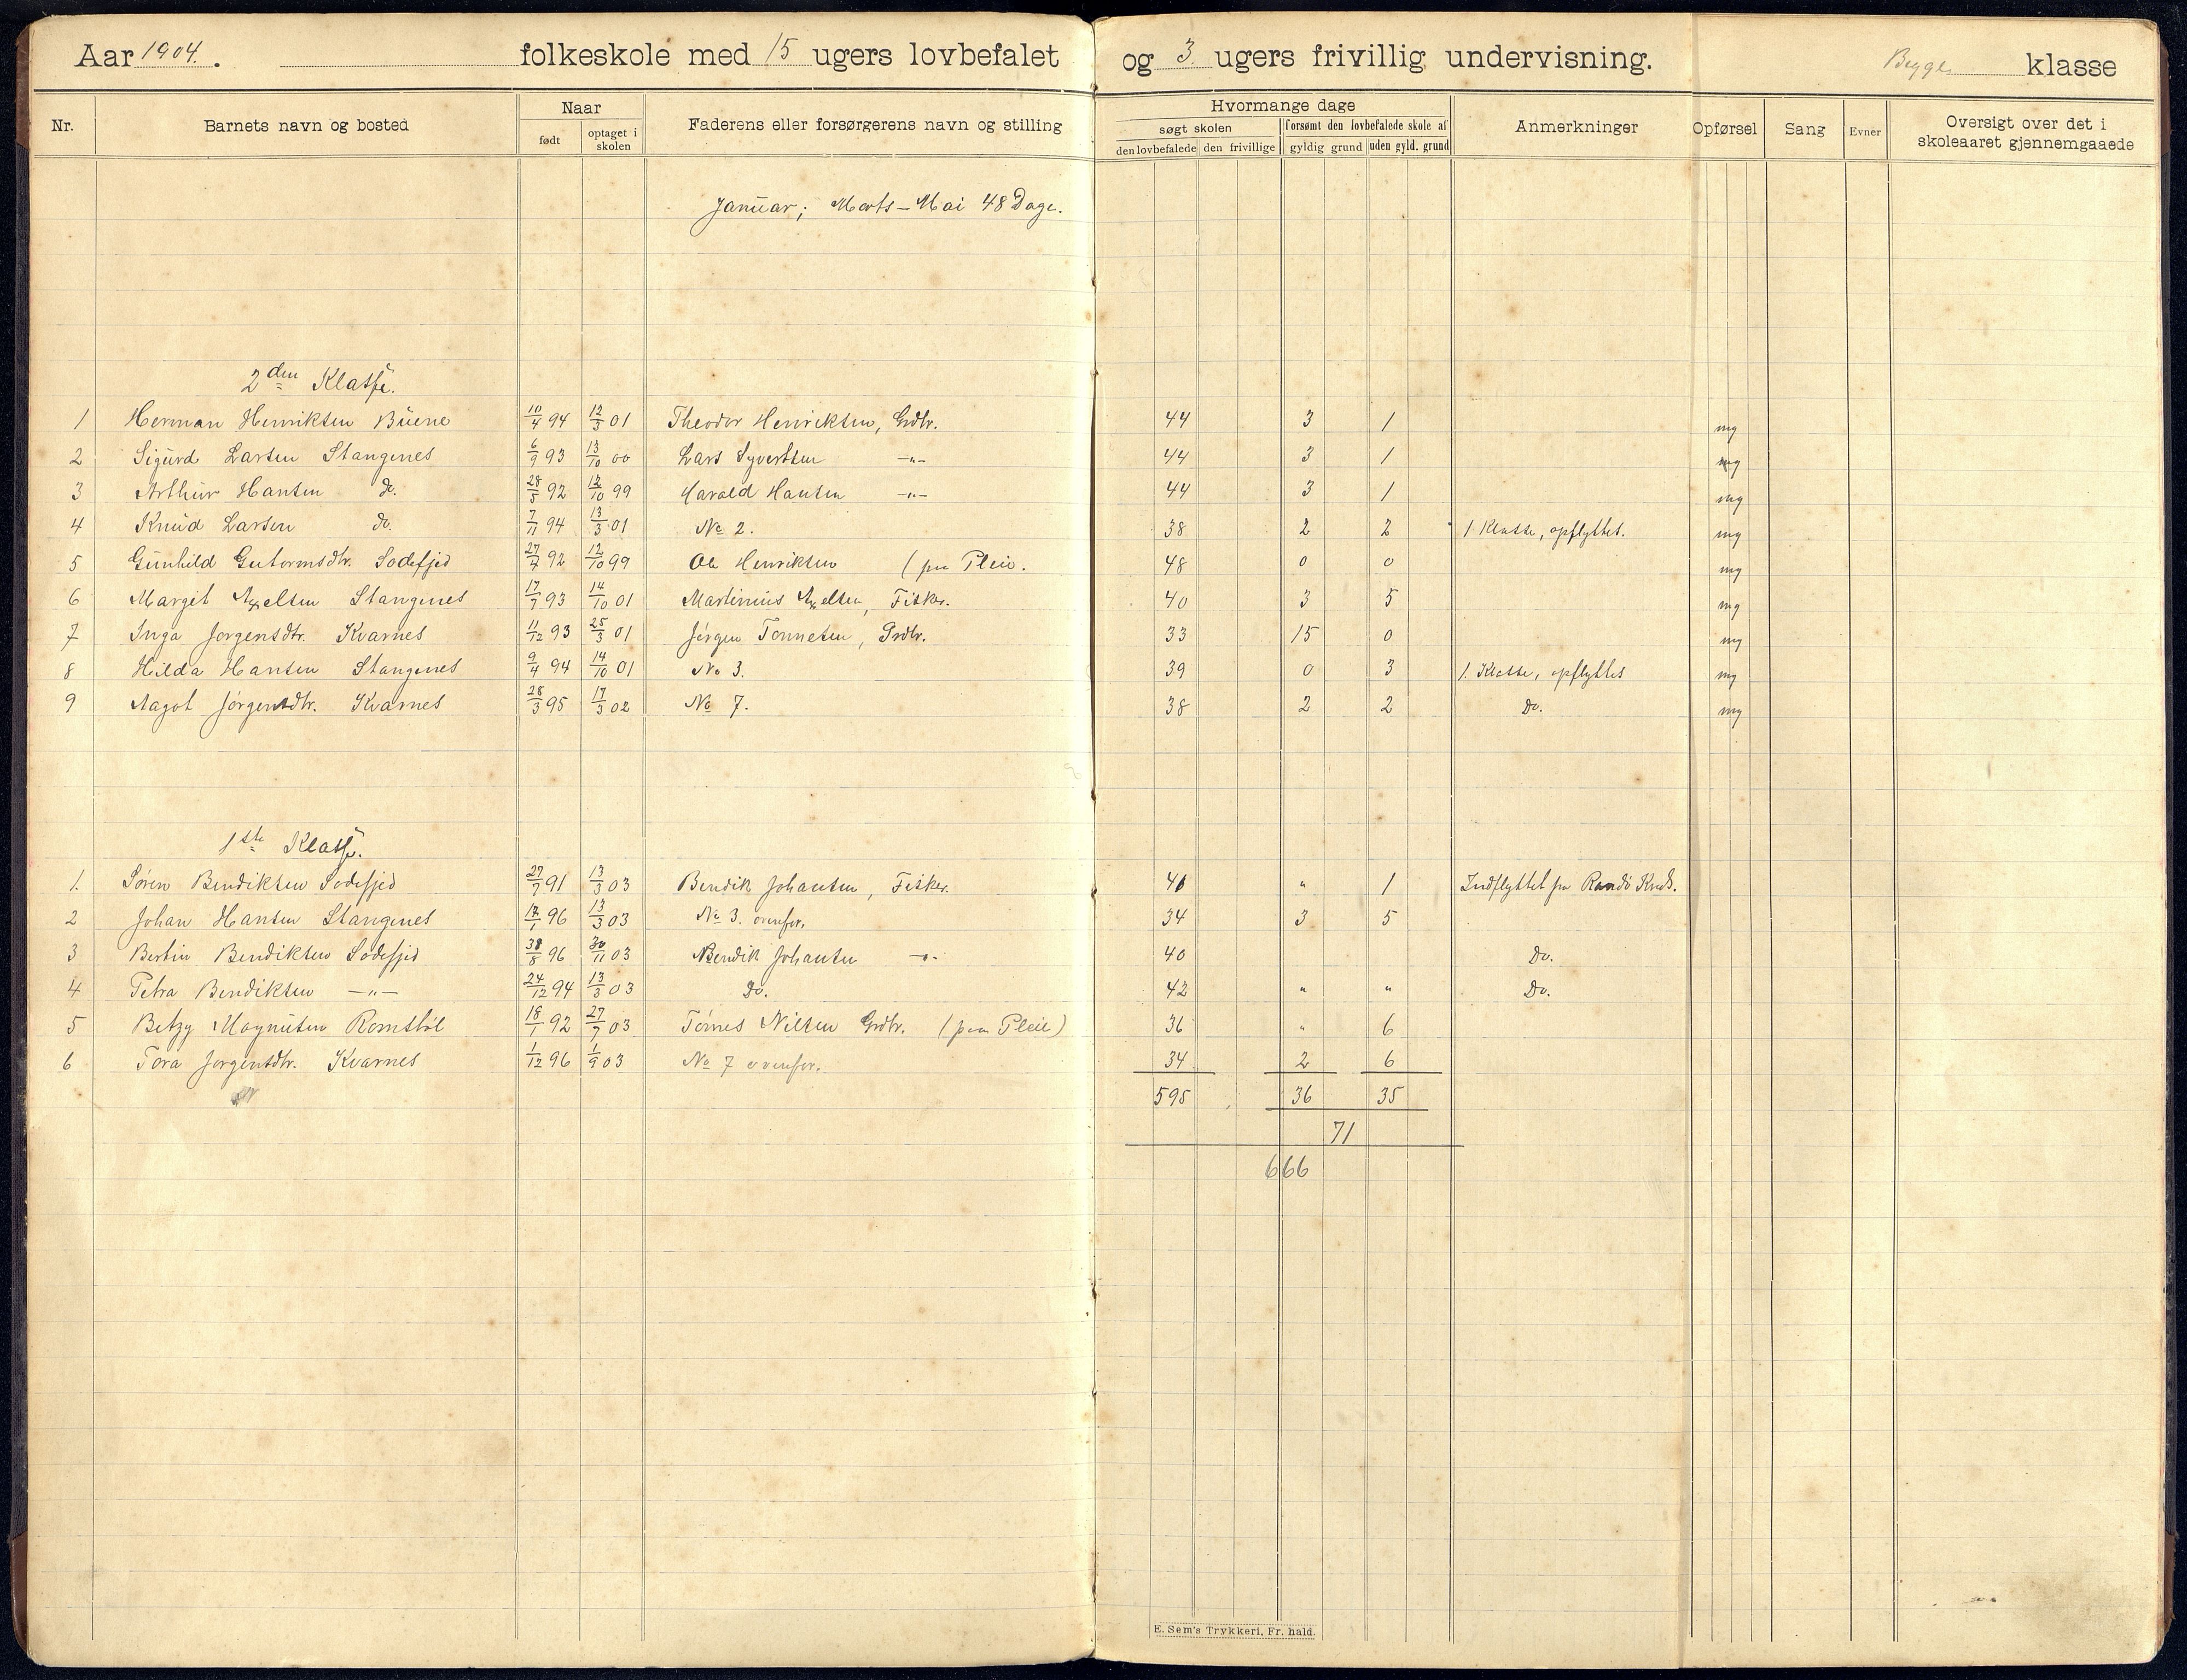 Aar 1904. folkeskole med 15 ugers lovbefalet og 3. ugers frivillig undervisning. Begge klasse
Nr. Barnets navn og bosted Naar Faderens eller forsørgerens navn og stilling Hvormange dage Anmerkninger Opførsel Sang Evner Oversigt over det i skoleaaret gjennemgaaede
født optaget i skolen søgt skolen forsømt den lovbefalede skole af
den lovbefalede den frivillige gyldig grund uden gyld. grund
Januar; Marts - Mai 48 Dage.
2den Klasse.
1 Herman Henriksen Buene 10/4 94 12/3 01 Theodor Henriksen, Grdbr. 44 3 1 mg
2 Sigurd Larsen Stangenes 6/9 93 13/10 00 Lars Syvertsen -"- 44 3 1 mg
3 Arthur Hansen do. 28/5 92 12/10 99 Harald Hansen -"- 44 3 1 mg
4 Knud Larsen do. 7/11 94 13/3 01 No 2. 38 2 2 1 Klasse, opflyttet. mg
5 Gunhild Gutormsdtr. Sodefjed 27/7 92 12/10 99 Ole Henriksen (paa Pleie. 48 0 0 mg
6 Margit Axelsen Stangenes 17/7 93 14/10 01 Martinius Axelsen, Fisker. 40 3 5 mg
7 Inga Jørgensdtr. Kvarnes 11/12 93 25/3 01 Jørgen Tønnesen, Grdbr. 33 15 0 mg
8 Hilda Hansen Stangenes 9/4 94 14/10 01 No 3. 39 0 3 1. Klasse, opflyttet mg
9 Aagot Jørgensdtr. Kvarnes 28/3 95 17/3 02 No 7. 38 2 2 Do. mg
1ste Klasse.
1. Søren Bendiksen Sodefjed 27/7 91 13/3 03 Bendik Johansen, Fisker. 41 " 1 Indflyttet fra Randø Kreds.
2 Johan Hansen Stangenes 17/1 96 13/3 03 No 3. ovenfor. 34 3 5
3 Bertin Bendiksen Sodefjed /8 96 30/11 03 Bendik Johansen -"- 40 Do.
4 Petra Bendiksen -"- 24/12 94 13/3 03 Do. 42 " " Do.
5 Betzy Magnusen Romsløl 18/1 92 27/7 03 Tømes Nilsen Grdbr. (paa Pleie) 36 " 6
6 Tora Jørgensdtr. Kvarnes 1/12 96 1/9 03 No 7 ovenfor. 34 2 6
595 36 35
71
666
E. Sem's Trykkeri, Fr. hald.